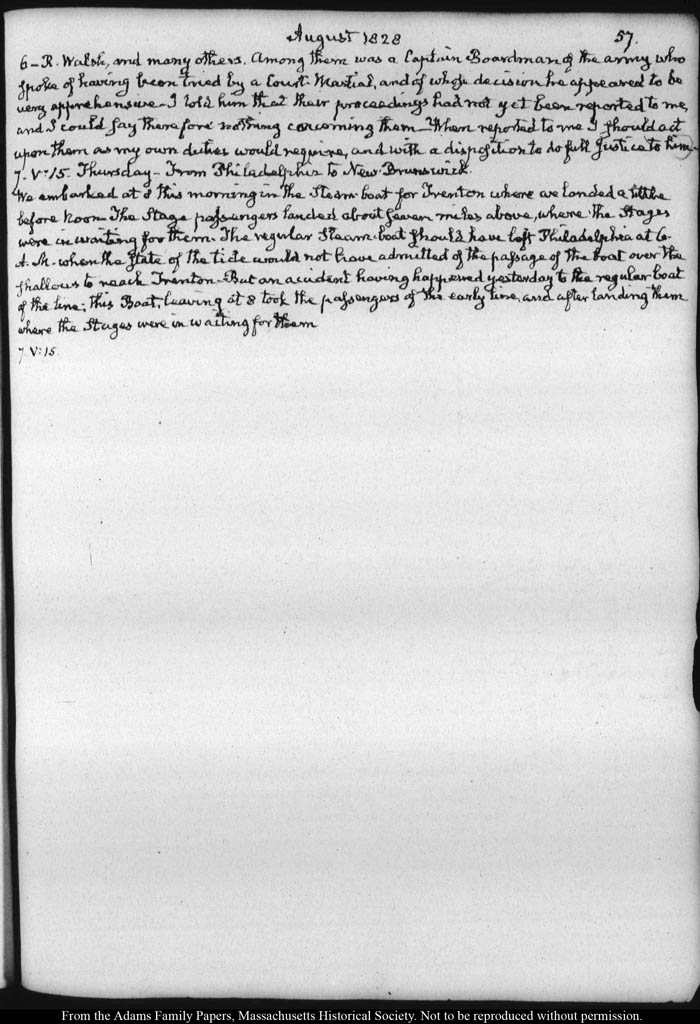 August 1828
57.
6 – R. Walsh, and many others. Among them was a Captain Boardman of the army who
spoke of having been tried by a Court-Martial, and of whose decision he appeared to be
very apprehensive – I told him that their proceedings had not yet been reported to me,
and I could say therefore nothing concerning them – When reported to me I should act
upon them as my own duties would require, and with a disposition to do full Justice to him –
7. V:15. Thursday – From Philadelphia to New-Brunswick.
We embarked at 8 this morning in the Steam-boat for Trenton where we landed a little
before Noon – The Stage passengers landed about seven miles above, where the Stages
were in waiting for them. The regular Steam-boat should have left Philadelphia at 6.
A. M. when the State of the tide would not have admitted of the passage of the boat over the
shallows to reach Trenton – But an accident having happened yesterday to the regular boat
of the line; this Boat, leaving at 8 took the passengers of the early line, and after landing them
where the Stages were in waiting for them
7. V:15.
From the Adams Family Papers, Massachusetts Historical Society. Not to be reproduced without permission.